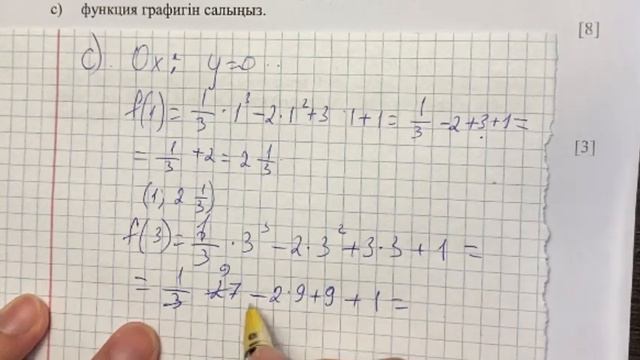 c) функция графигін салыңыз.
[8]
c). Ox: y=0..
f(1) = 1/3 · 1³ - 2·1² + 3 · 1 + 1 = 1/3 - 2 + 3 + 1 =
[3]
= 1/3 + 2 = 2 1/3
(1; 2 1/3)
f(3) = 1/3 · 3³ - 2·3² + 3·3 + 1 =
= 1/3 · 27 9 - 2·9 + 9 + 1 =